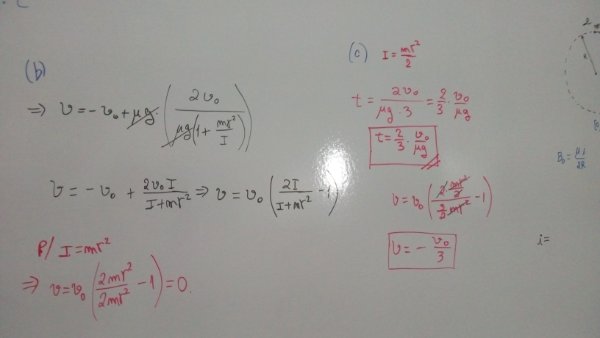 (b)
⇒ v = -v₀ + μg · ( 2v₀ / μg(1 + mr²/I) )
v = -v₀ + 2v₀I / (I+mr²) ⇒ v = v₀ ( 2I / (I+mr²) - 1 )
P/ I = mr²
⇒ v = v₀ ( 2mr² / 2mr² - 1 ) = 0.
(c) I = mr²/2
t = 2v₀ / (μg · 3) = 2/3 · v₀/μg
t = 2/3 · v₀/μg
v = v₀ ( (2 mr²/2) / (3/2 mr²) - 1 )
v = - v₀/3
2
B₀ = μi / 2R
i =